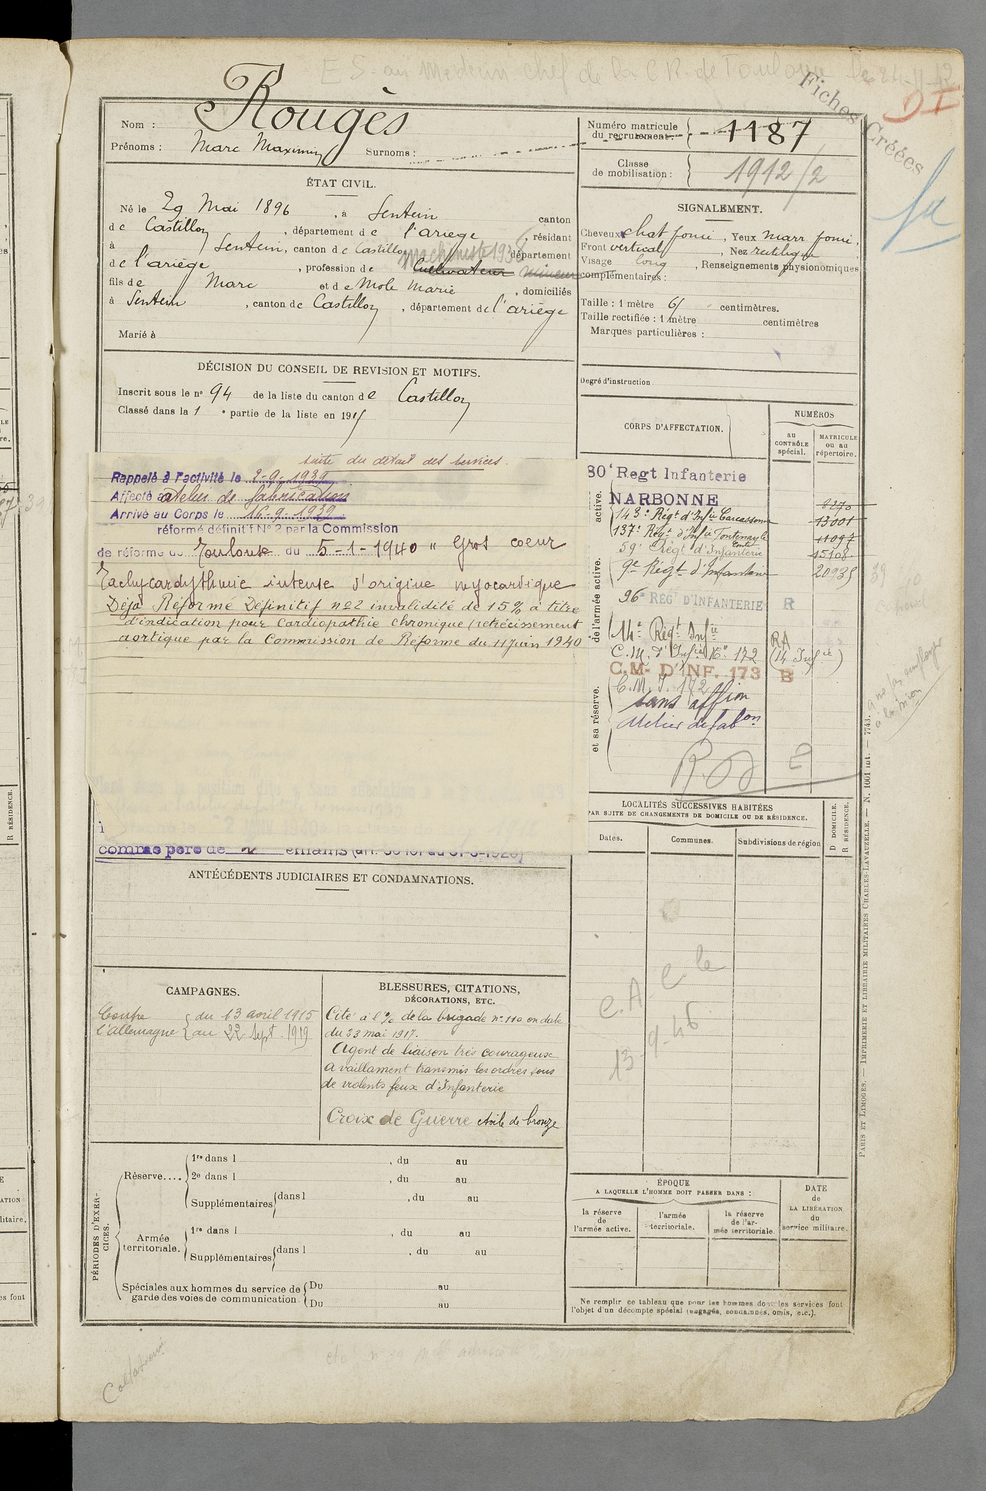 E S. au Médecin chef de la C R. de Toulouse le 24-11-
Fiches Créées
D I
Rougès
Nom :
Prénoms : Marc Maximin Surnoms :
Numéro matricule du recrutement : 1187
Classe de mobilisation : 1912/2
ÉTAT CIVIL.
Né le 29 Mai 1896, à Sentein canton
de Castillon, département de l'ariège, résidant
à Sentein, canton de Castillon, département
machiniste 193
de l'ariège, profession de Cultivateur mineur
fils de Marc et de Mole Marie, domiciliés
à Sentein, canton de Castillon, département de l'ariège
Marié à
SIGNALEMENT.
Cheveux chat foncé, Yeux marr foncé,
Front vertical, Nez rectiligne
Visage long, Renseignements physionomiques
complémentaires :
Taille : 1 mètre 61 centimètres.
Taille rectifiée : 1 mètre centimètres
Marques particulières :
Degré d'instruction
DÉCISION DU CONSEIL DE REVISION ET MOTIFS.
Inscrit sous le n° 94 de la liste du canton de Castillon
Classé dans la 1e partie de la liste en 1915
suite du détail des services.
Rappelé à l'activité le 2-9-1939
Affecté à atelier de fabrication
Arrivé au Corps le 16-9-1939
réformé définitif N° 2 par la Commission
de réforme de Toulouse du 5-1-1940 " Gros coeur
Tachycardythmie intense d'origine myocardique
Déjà Réformé Définitif n°2 invalidité de 15% à titre
d'indication pour Cardiopathie chronique (rétrécissement
aortique par la Commission de Réforme du 11 juin 1940
comme père de enfants
CORPS D'AFFECTATION.
NUMÉROS
au CONTRÔLE spécial.
MATRICULE ou au répertoire.
de l'armée active.
active.
80e Regt Infanterie
NARBONNE
143e Régt d'Infie Carcassonne 13001
137e Régt d'Infie Fontenay le Comte 11097
59e Régt d'Infanterie 15108
9e Régt d'Infanterie 20935
96e REG. D'INFANTERIE R
14e Régt Infie RA
C.M. d'Infie 16e 172 (14 Infie)
C.M. D'INF. 173 B
C.M. I. 172
sans affion
Atelier de fabon
et sa réserve.
LOCALITÉS SUCCESSIVES HABITÉES
PAR SUITE DE CHANGEMENTS DE DOMICILE OU DE RÉSIDENCE.
D DOMICILE.
R RÉSIDENCE.
Dates.
Communes.
Subdivisions de région
13-9-46
ANTÉCÉDENTS JUDICIAIRES ET CONDAMNATIONS.
CAMPAGNES.
Contre l'Allemagne { du 13 avril 1915
au 22 Sept 1919
BLESSURES, CITATIONS,
DÉCORATIONS, ETC.
Cité à l'% de la brigade n° 110 en date
du 23 mai 1917.
Agent de liaison très courageux
a vaillament transmis les ordres sous
de violents feux d'Infanterie
Croix de Guerre étoile de bronze
PÉRIODES D'EXERCICES.
Réserve....
1re dans l , du au
2e dans l , du au
Supplémentaires { dans l , du au
Armée territoriale.
1re dans l , du au
Supplémentaires { dans l , du au
Spéciales aux hommes du service de garde des voies de communication
Du au
Du au
ÉPOQUE
A LAQUELLE L'HOMME DOIT PASSER DANS :
la réserve de l'armée active.
l'armée territoriale.
la réserve de l'armée territoriale.
DATE de LA LIBÉRATION du service militaire.
Ne remplir ce tableau que pour les hommes dont les services font
l'objet d'un décompte spécial (engagés, condamnés, omis, etc.).
PARIS ET LIMOGES. — IMPRIMERIE ET LIBRAIRIE MILITAIRES CHARLES-LAVAUZELLE. — N. 1061 int. — 7743.